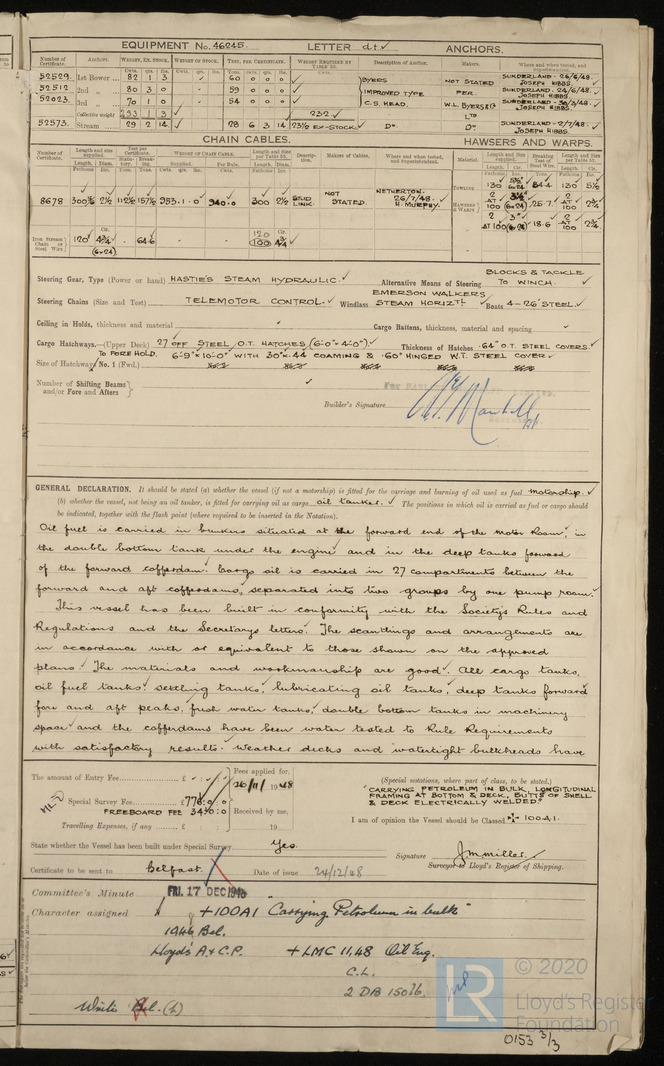 EQUIPMENT No. 46245. LETTER d.t ✓ ANCHORS.
Number of Certificate. Anchors. Weight, Ex. Stock. Weight of Stock. Test, per Certificate. Weight Required by Table 53. Description of Anchor. Makers. Where and when tested, and Superintendent.
52529. 1st Bower 82 1 3 60 0 0 0 BYERS NOT STATED SUNDERLAND - 26/6/48. JOSEPH HIBBS.
52512 2nd „ 80 3 0 59 0 0 0 IMPROVED TYPE PER SUNDERLAND - 24/6/48. JOSEPH HIBBS.
52023 3rd „ 70 1 0 54 0 0 0 C.S. HEAD. W.L. BYERS & Co SUNDERLAND JOSEPH HIBBS.
Collective weight 233 1 3 232 LTD
52573. Stream 29 2 14 28 6 3 14 23½ EX-STOCK Do. Do. SUNDERLAND - 2/7/48. JOSEPH HIBBS.
CHAIN CABLES. HAWSERS AND WARPS.
Number of Certificate. Length and size supplied. Test per Certificate. Weight of Chain Cable. Length and size per Table 53. Description. Makers of Cables. Where and when tested, and Superintendent. Material. Length and Size supplied. Breaking Test of Steel Wire. Length and Size per Table 53.
Length. Diam. Statutory. Breaking. Supplied. Per Rule. Length. Diam.
TOWLINE 130 5½" 6x24 84.4 130 5½
8678 300½ 2½ 112½ 157½ 953.1.0 940.0 300 2½ STUD LINK. NOT STATED NETHERTON. 26/7/48. H. MURPHY. HAWSERS & WARPS 2 AT 100 (6x24) 25.7 2 AT 100 2¾
2 AT 100 3" (6x24) 18.6 2 AT 100 2¾
Iron Stream Chain or Steel Wire 120 4¾ (6x24) 64.6 120 100 4¾
Steering Gear, Type (Power or hand) HASTIE'S STEAM HYDRAULIC. ✓ Alternative Means of Steering BLOCKS & TACKLE TO WINCH.
Steering Chains (Size and Test) TELEMOTOR CONTROL. ✓ Windlass EMERSON WALKERS STEAM HORIZTL ✓ Boats 4-26' STEEL. ✓
Ceiling in Holds, thickness and material Cargo Battens, thickness, material and spacing
Cargo Hatchways.—(Upper Deck) 27 OFF STEEL O.T. HATCHES (6'0"x4'0") ✓ Thickness of Hatches .64" O.T. STEEL COVERS.
TO FORE HOLD. 6'9"x10'0" WITH 30"x.44 COAMING & .60" HINGED W.T. STEEL COVER ✓
Size of Hatchways No. 1 (Fwd.)
Number of Shifting Beams and/or Fore and Afters
Builder's Signature
GENERAL DECLARATION. It should be stated (a) whether the vessel (if not a motorship) is fitted for the carriage and burning of oil used as fuel motorship. ✓
(b) whether the vessel, not being an oil tanker, is fitted for carrying oil as cargo oil tanker. ✓ The positions in which oil is carried as fuel or cargo should
be indicated, together with the flash point (where required to be inserted in the Notation).
Oil fuel is carried in bunkers situated at the forward end of the Motor Room, in
the double bottom tank under the engine and in the deep tanks forward
of the forward cofferdam. Cargo oil is carried in 27 compartments between the
forward and aft cofferdams, separated into two groups by one pump room.
This vessel has been built in conformity with the Society's Rules and
Regulations and the Secretary's letters. The scantlings and arrangements are
in accordance with or equivalent to those shown on the approved
plans. The materials and workmanship are good. All cargo tanks,
oil fuel tanks, settling tanks, lubricating oil tanks, deep tanks forward
fore and aft peaks, fresh water tanks, double bottom tanks in machinery
space and the cofferdams have been water tested to Rule Requirements
with satisfactory results. Weather decks and watertight bulkheads have
The amount of Entry Fee £ Fees applied for, 26/11/1948 (Special notations, where part of class, to be stated.)
Special Survey Fee £776:0:0 "CARRYING PETROLEUM IN BULK, LONGITUDINAL
FREEBOARD FEE 34:0:0 Received by me, FRAMING AT BOTTOM & DECK, BUTTS OF SHELL
& DECK ELECTRICALLY WELDED."
Travelling Expenses, if any £ 19 I am of opinion the Vessel should be Classed ✠ 100A1.
State whether the Vessel has been built under Special Survey Yes.
Signature J. M. Miller.
Surveyor to Lloyd's Register of Shipping.
Certificate to be sent to Belfast. Date of issue 24/12/48
Committee's Minute FRI. 17 DEC 1948
Character assigned +100A1 "Carrying Petroleum in bulk"
Lloyd's A & C.P. +LMC 11,48 Oil Eng.
C.L.
2 DB 150 lb.
Write Bel. (L)
LR © 2020
Lloyd's Register
Foundation
0153 3/3